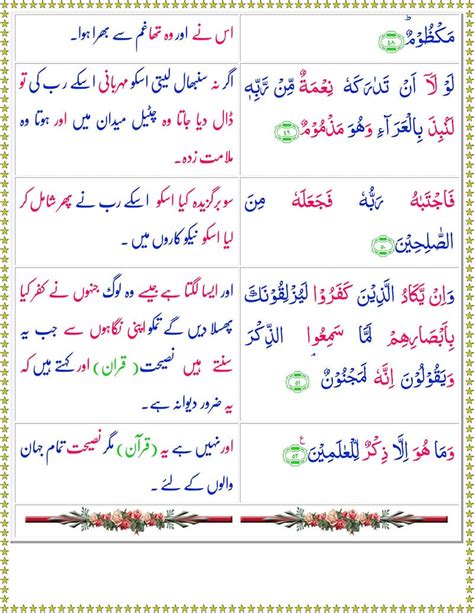 مَكْظُوْمٌؕ ﴿۴۸﴾
اس نے اور وہ تھا غم سے بھرا ہوا۔
لَوْ لَاۤ اَنْ تَدٰرَكَهٗ نِعْمَةٌ مِّنْ رَّبِّهٖ
لَنُبِذَ بِالْعَرَآءِ وَهُوَ مَذْمُوْمٌ ﴿۴۹﴾
اگر نہ سنبھال لیتی اسکو مہربانی اسکے رب کی تو
ڈال دیا جاتا وہ چٹیل میدان میں اور ہوتا وہ
ملامت زدہ۔
فَاجْتَبٰهُ رَبُّهٗ فَجَعَلَهٗ مِنَ
الصّٰلِحِيْنَ ﴿۵۰﴾
سو برگزیدہ کیا اسکو اسکے رب نے پھر شامل کر
لیا اسکو نیکو کاروں میں ۔
وَاِنْ يَّكَادُ الَّذِيْنَ كَفَرُوْا لَيُزْلِقُوْنَكَ
بِاَبْصَارِهِمْ لَمَّا سَمِعُوا الذِّكْرَ
وَيَقُوْلُوْنَ اِنَّهٗ لَمَجْنُوْنٌۘ ﴿۵۱﴾
اور ایسا لگتا ہے جیسے وہ لوگ جنہوں نے کفر کیا
پھسلا دیں گے تمکو اپنی نگاہوں سے جب یہ
سنتے ہیں نصیحت( قران) اور کہتے ہیں کہ
یہ ضرور دیوانہ ہے۔
وَمَا هُوَ اِلَّا ذِكْرٌ لِّلْعٰلَمِيْنَ ﴿۵۲﴾
اور نہیں ہے یہ (قرآن) مگر نصیحت تمام جہان
والوں کے لئے ۔